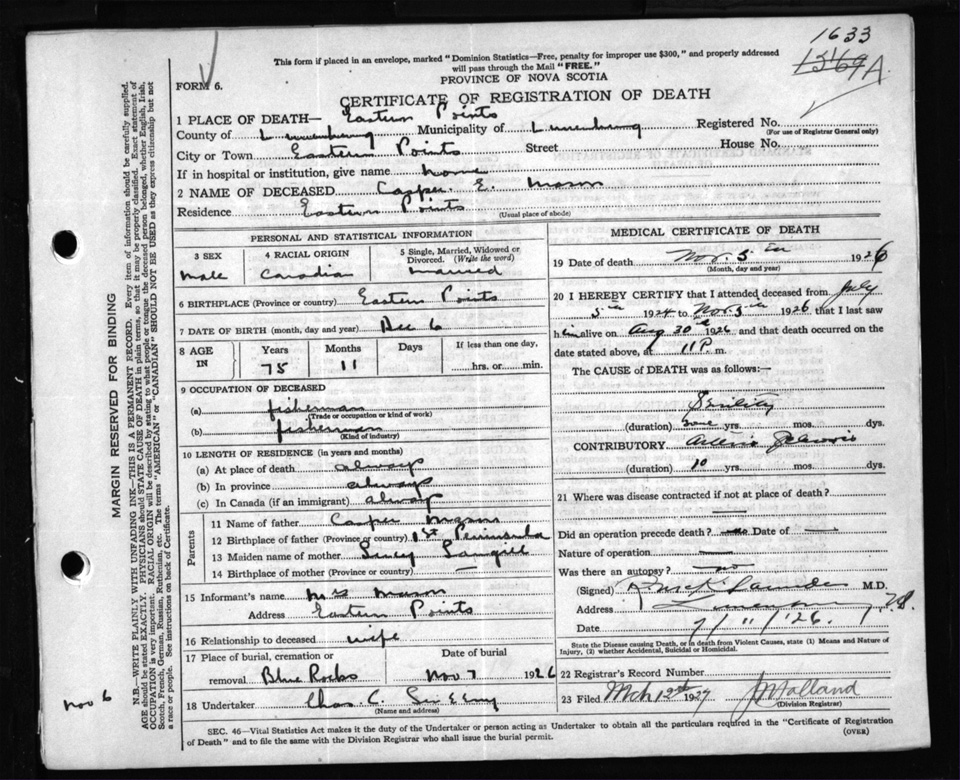 1633
1569A
This form if placed in an envelope, marked "Dominion Statistics—Free, penalty for improper use $300," and properly addressed
will pass through the Mail "FREE."
FORM 6.
PROVINCE OF NOVA SCOTIA
CERTIFICATE OF REGISTRATION OF DEATH
1 PLACE OF DEATH— Eastern Points
County of Lunenburg Municipality of Lunenburg Registered No.
(For use of Registrar General only)
City or Town Eastern Points Street House No.
If in hospital or institution, give name home
2 NAME OF DECEASED Casper E. Mason
Residence Eastern Points
(Usual place of abode)
PERSONAL AND STATISTICAL INFORMATION
3 SEX
male
4 RACIAL ORIGIN
Canadian
5 Single, Married, Widowed or
Divorced. (Write the word)
married
6 BIRTHPLACE (Province or country) Eastern Points
7 DATE OF BIRTH (month, day and year) Dec 6
8 AGE
IN
Years
75
Months
11
Days
If less than one day,
hrs. or min.
9 OCCUPATION OF DECEASED
(a) fisherman
(Trade or occupation or kind of work)
(b) fisherman
(Kind of industry)
10 LENGTH OF RESIDENCE (in years and months)
(a) At place of death always
(b) In province always
(c) In Canada (if an immigrant) always
Parents
11 Name of father Casper Mason
12 Birthplace of father (Province or country) 1st Peninsula
13 Maiden name of mother Lucy Langill
14 Birthplace of mother (Province or country) —
15 Informant's name Mrs Mason
Address Eastern Points
16 Relationship to deceased wife
17 Place of burial, cremation or
removal Blue Rocks
Date of burial
Nov 7 1926
18 Undertaker Chas. C.
(Name and address)
MEDICAL CERTIFICATE OF DEATH
19 Date of death Nov. 5th 1926
(Month, day and year)
20 I HEREBY CERTIFY that I attended deceased from July
5th 1924 to Nov 5th 1926 that I last saw
him alive on Aug 30th 1926 and that death occurred on the
date stated above, at 11 P. m.
The CAUSE of DEATH was as follows:—
Senility
(duration) yrs. mos. dys.
CONTRIBUTORY
(duration) 10 yrs. mos. dys.
21 Where was disease contracted if not at place of death?
—
Did an operation precede death? no Date of —
Nature of operation —
Was there an autopsy? no
(Signed) M.D.
Address N.S.
Date 7/11/'26.
State the Disease causing Death, or in death from Violent Causes, state (1) Means and Nature of
Injury, (2) whether Accidental, Suicidal or Homicidal.
22 Registrar's Record Number
23 Filed Mch 12th 1927 Holland
(Division Registrar)
SEC. 46—Vital Statistics Act makes it the duty of the Undertaker or person acting as Undertaker to obtain all the particulars required in the "Certificate of Registration
of Death" and to file the same with the Division Registrar who shall issue the burial permit.
(OVER)
MARGIN RESERVED FOR BINDING
N.B.—WRITE PLAINLY WITH UNFADING INK—THIS IS A PERMANENT RECORD. Every item of information should be carefully supplied.
AGE should be stated EXACTLY. PHYSICIANS should STATE CAUSE OF DEATH in plain terms, so that it may be properly classified. Exact statement of
OCCUPATION is very important. RACIAL ORIGIN will be described by stating to what people or tongue the deceased person belonged, whether English, Irish,
Scotch, French, German, Russian, Ruthenian, etc. The terms "AMERICAN" or "CANADIAN" SHOULD NOT BE USED as they express citizenship but not
a race or people. See instructions on back of Certificate.
Nov 6